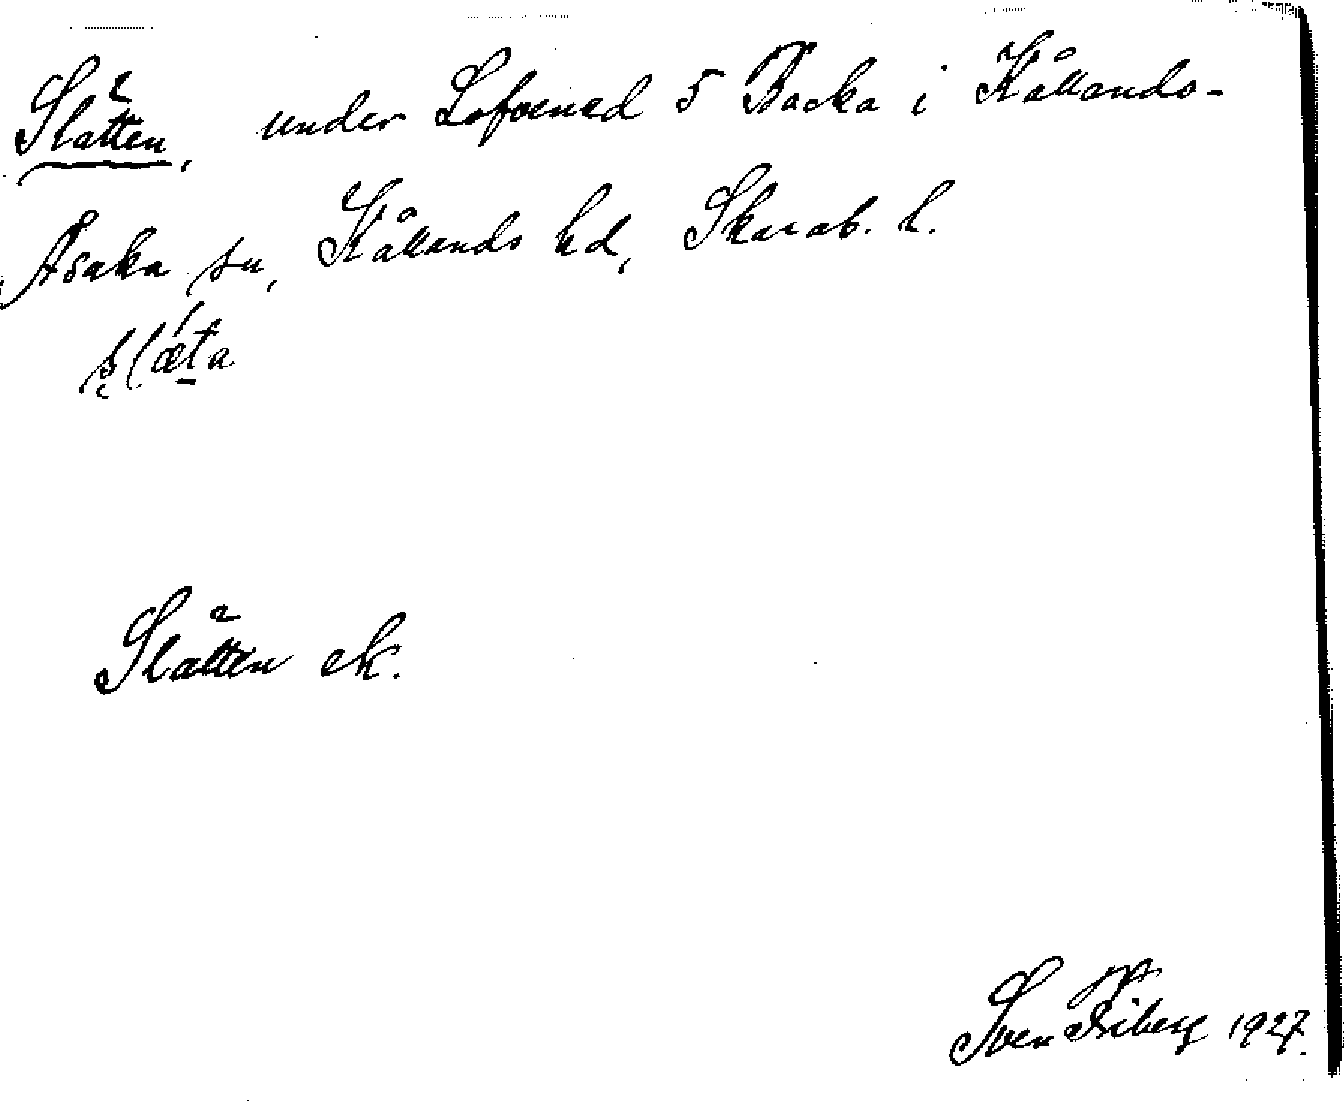 Slätten, under Lofvened 5 Backa i Kållands-
Åsaka sn, Kållands hd, Skarab. l.
slæ´ta
Slätten ek.
Sven Friberg 1927.